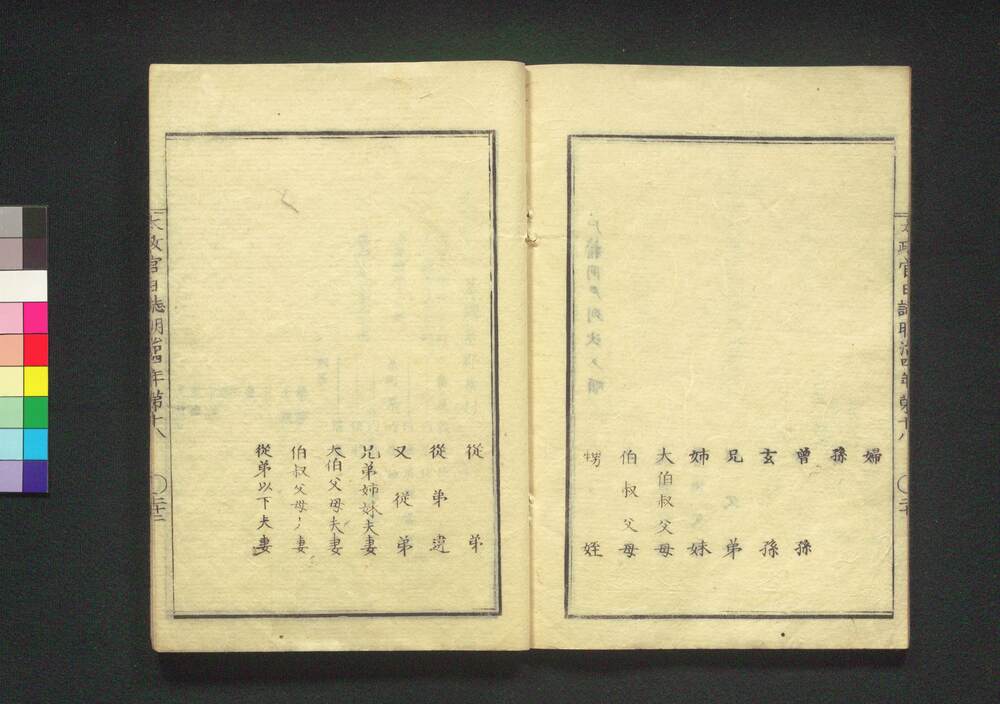 婦
孫
曽孫
玄孫
兄弟
姉妹
大伯叔父母
伯叔父母
甥姪
戸籍同戸列次ノ順
太政官日誌明治四年第十八
從弟
從弟違
又從弟
兄弟姉妹夫妻
大伯父母夫妻
伯叔父母ノ妻
從弟以下夫妻
太政官日誌明治四年第十八